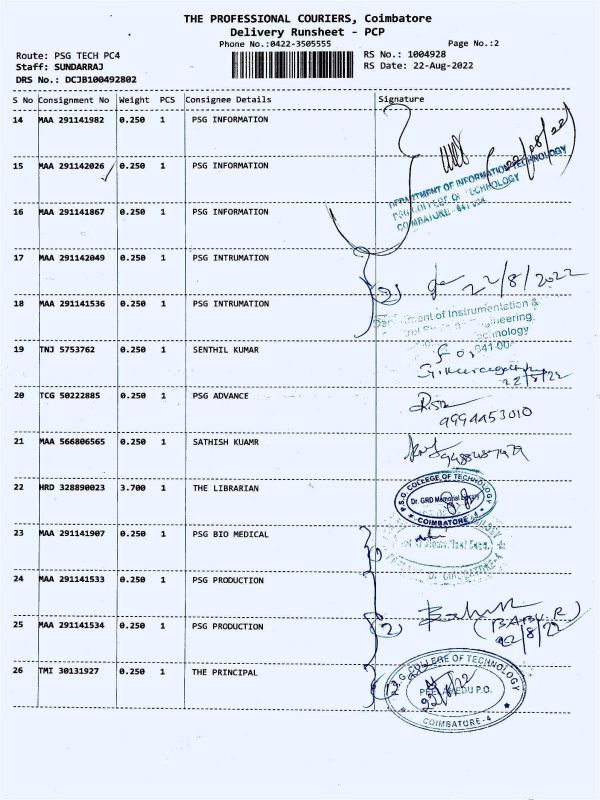 THE PROFESSIONAL COURIERS, Coimbatore
Delivery Runsheet - PCP
Phone No.:0422-3505555
Page No.:2
Route: PSG TECH PC4
RS No.: 1004928
Staff: SUNDARRAJ
RS Date: 22-Aug-2022
DRS No.: DCJB100492802
S No Consignment No Weight PCS Consignee Details Signature
14 MAA 291141982 0.250 1 PSG INFORMATION
15 MAA 291142026 0.250 1 PSG INFORMATION
DEPARTMENT OF INFORMATION TECHNOLOGY
PSG COLLEGE OF TECHNOLOGY
COIMBATORE - 641 004
16 MAA 291141867 0.250 1 PSG INFORMATION
17 MAA 291142049 0.250 1 PSG INTRUMATION
2) 22/8/2022
18 MAA 291141536 0.250 1 PSG INTRUMATION
of Instrumentation &
19 TNJ 5753762 0.250 1 SENTHIL KUMAR
22/8/22
20 TCG 50222885 0.250 1 PSG ADVANCE
9994453010
21 MAA 566806565 0.250 1 SATHISH KUAMR
22 HRD 328890023 3.700 1 THE LIBRARIAN
P.S.G. COLLEGE OF TECHNOLOGY
Dr. GRD Memorial Library
COIMBATORE-4
23 MAA 291141907 0.250 1 PSG BIO MEDICAL
24 MAA 291141533 0.250 1 PSG PRODUCTION
25 MAA 291141534 0.250 1 PSG PRODUCTION
2) (BABU.R)
22/8/22
26 TMI 30131927 0.250 1 THE PRINCIPAL
P.S.G. COLLEGE OF TECHNOLOGY
PEELAMEDU P.O.
COIMBATORE-4